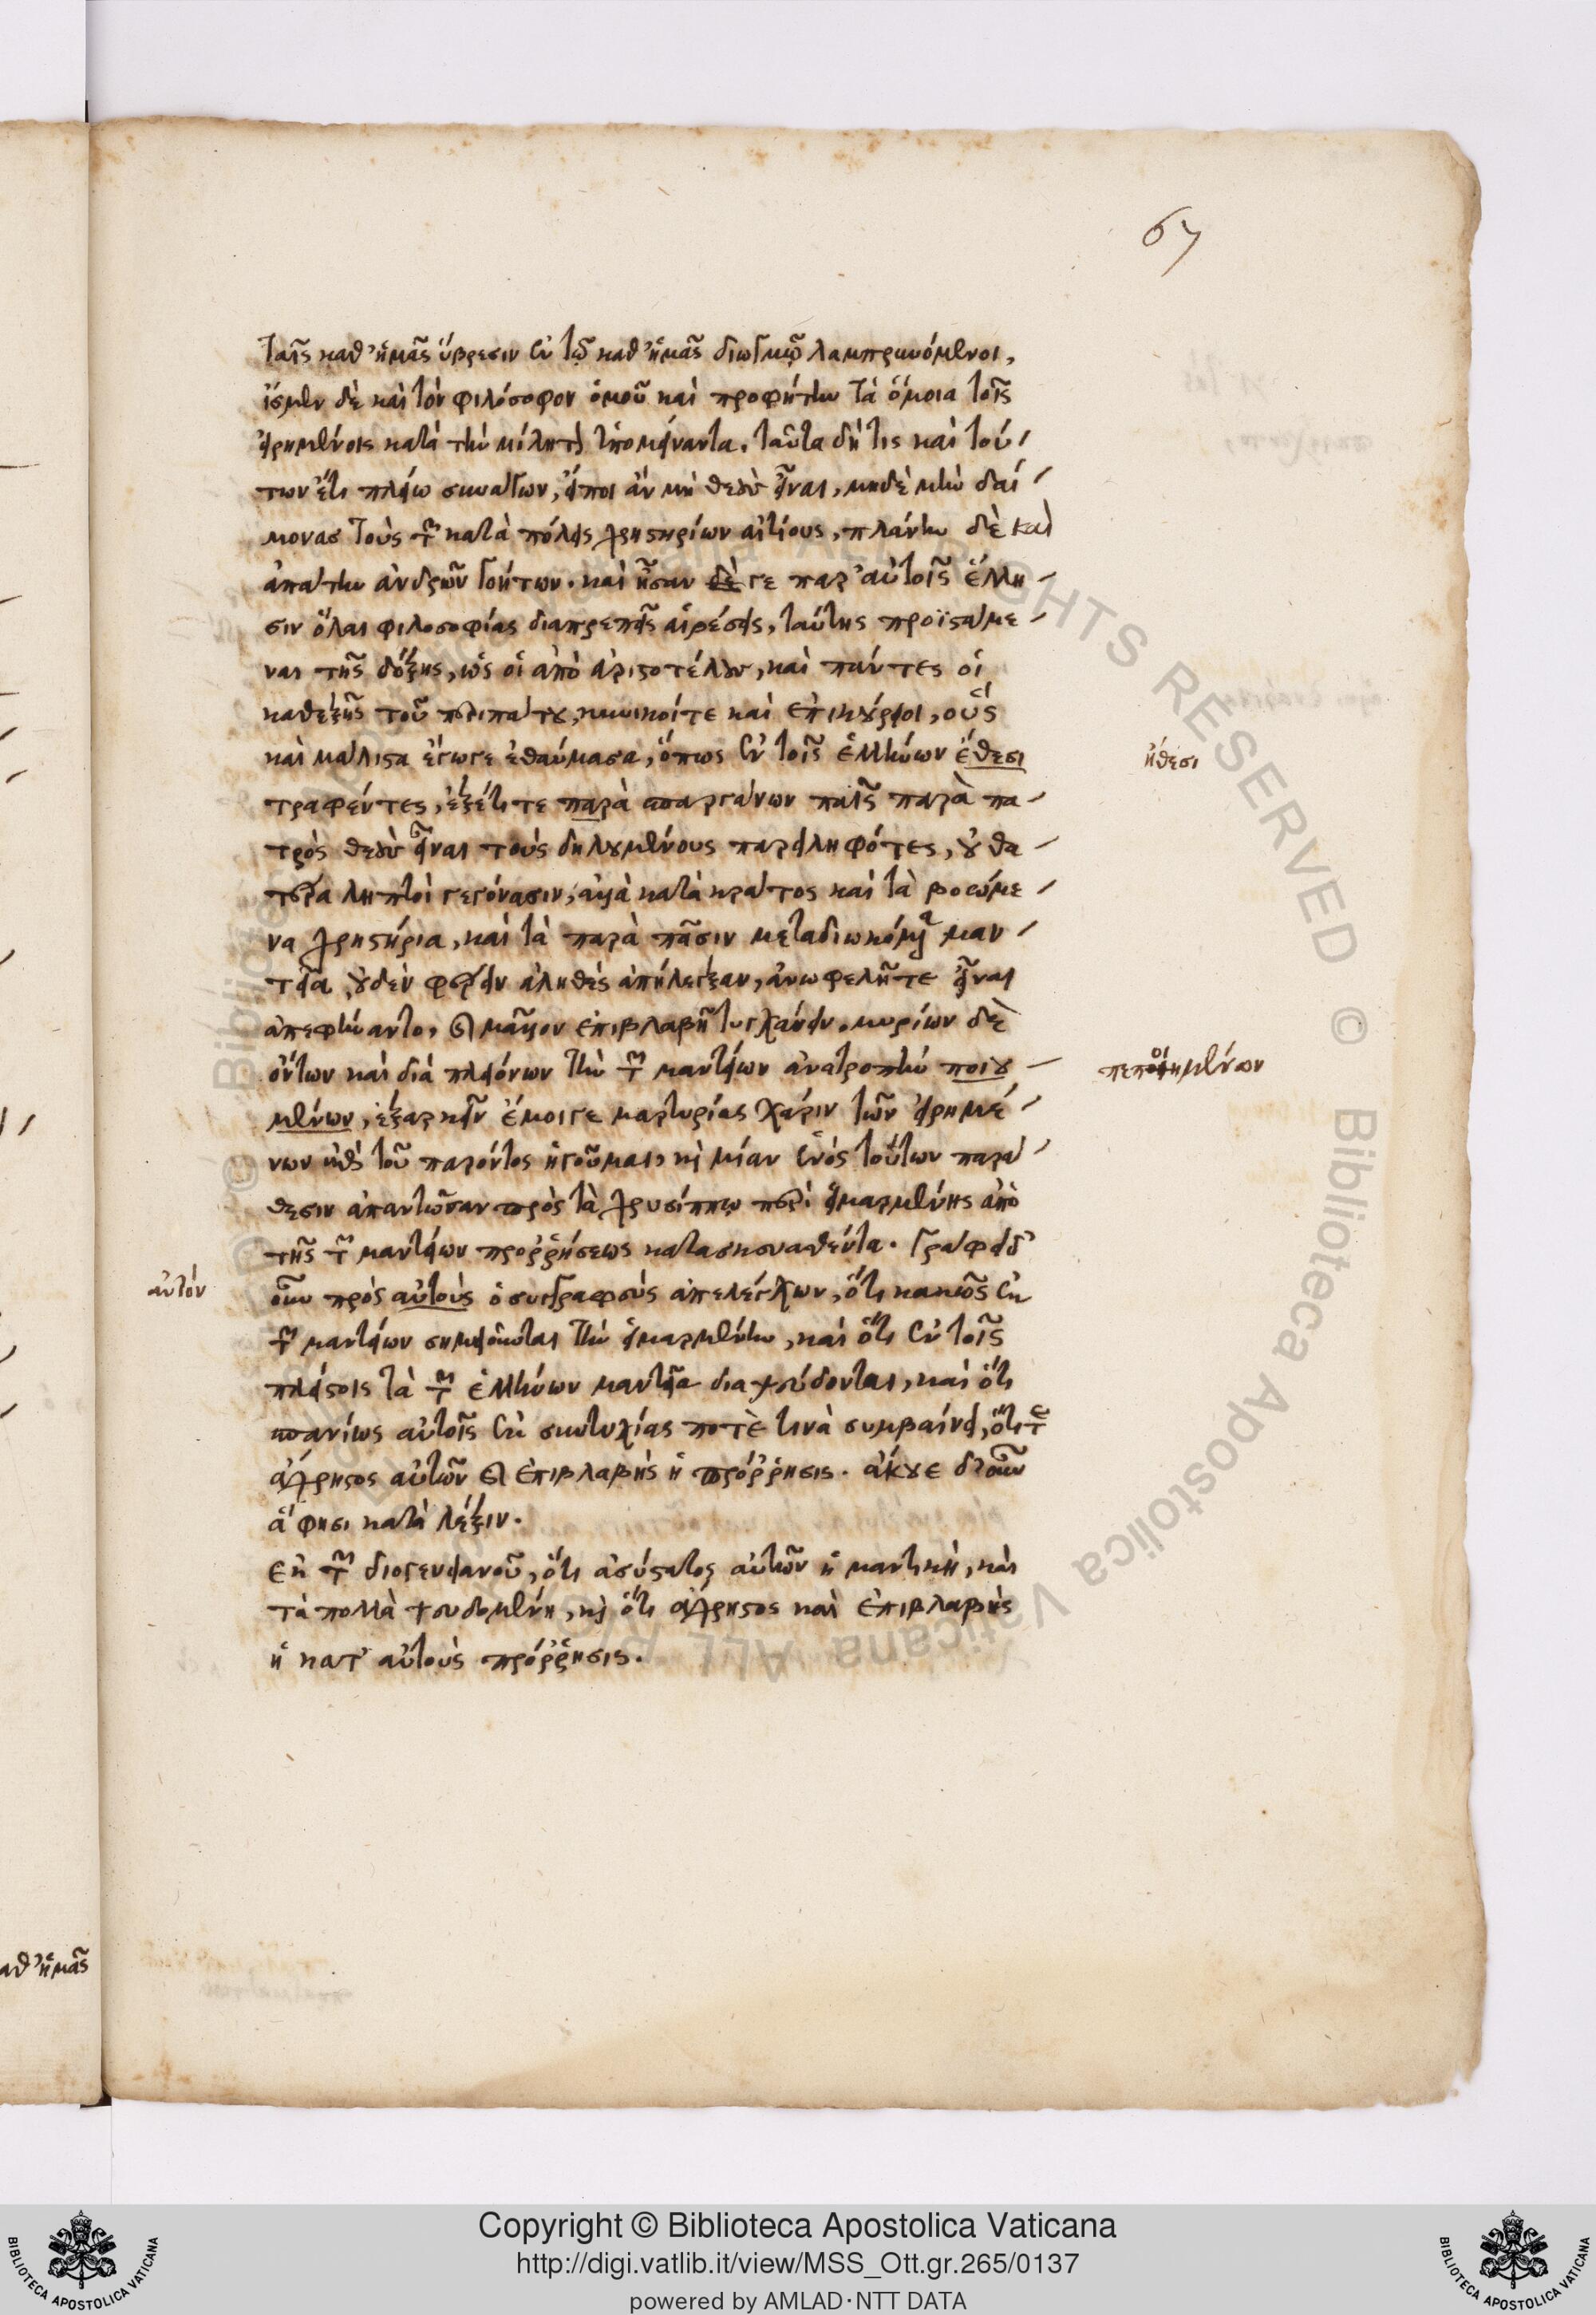 67
ταῖς καθ' ἡμᾶς ὕβρεσιν ἐν τῷ καθ' ἡμᾶς διωγμῷ λαμπρυνόμενοι,
ἴσμεν δὲ καὶ τὸν φιλόσοφον ὁμοῦ καὶ προφήτην τὰ ὅμοια τοῖς
εἰρημένοις κατὰ τὴν μίλητον ὑπομείναντα. ταῦτα δή τις καὶ τού
των ἔτι πλείω συνάγων, εἴποι ἂν μὴ θεοὺς εἶναι, μηδὲ μὴν δαί
μονας τοὺς τῶν κατὰ πόλεις χρηστηρίων αἰτίους, πλάνην δὲ καὶ
ἀπάτην ἀνδρῶν γοήτων. καὶ ἦσαν δὲ γε παρ' αὐτοῖς ἕλλη
σιν ὅλαι φιλοσοφίας διαπρεπεῖς αἱρέσεις, ταύτης προϊστάμε
ναι τῆς δόξης, ὡς οἱ ἀπὸ ἀριστοτέλους, καὶ πάντες οἱ
καθεξῆς τοῦ περιπάτου, κυνικοί τε καὶ ἐπικούρειοι, οὓς
καὶ μάλιστα ἔγωγε ἐθαύμασα, ὅπως ἐν τοῖς ἑλλήνων ἔθεσι
ἤθεσι
τραφέντες, ἐξέτι τε παρὰ σπαργάνων παῖς παρὰ πα
τρὸς θεοὺς εἶναι τοὺς δηλουμένους παρειληφότες, οὐ θά
τερα ληπτοὶ γεγόνασιν, ἀλλὰ κατὰ κράτος καὶ τὰ βοώμε
να χρηστήρια, καὶ τὰ παρὰ πᾶσιν μεταδιωκόμενα μαν
τεῖα, οὐδὲν φέρειν ἀληθὲς ἀπήλεγξαν, ἀνωφελῆ τε εἶναι
ἀπεφήναντο, καὶ μᾶλλον ἐπιβλαβῆ τυγχάνειν. μυρίων δὲ
ὄντων καὶ διὰ πλειόνων τὴν τῶν μαντείων ἀνατροπὴν ποιου
πεποιημένων
μένων, ἐξαρκεῖν ἔμοιγε μαρτυρίας χάριν τῶν εἰρημέ
νων ἐπὶ τοῦ παρόντος ἡγοῦμαι, καὶ μίαν ἑνὸς τούτων παρά
θεσιν ἀπαντῶσαν πρὸς τὰ χρυσίππῳ περὶ εἱμαρμένης ἀπὸ
τῆς τῶν μαντείων προῤῥήσεως κατασκευασθέντα. γράφει δ'
αὐτόν
οὖν πρὸς αὐτοὺς ὁ συγγραφεὺς ἀπελέγχων, ὅτι κακῶς ἐκ
τῶν μαντείων σημειοῦται τὴν εἱμαρμένην, καὶ ὅτι ἐν τοῖς
πλείστοις τὰ τῶν ἑλλήνων μαντεῖα διαψεύδονται, καὶ ὅτι
σπανίως αὐτοῖς ἐκ συντυχίας ποτὲ τινὰ συμβαίνει, ὅτι τε
ἄχρηστος αὐτῶν καὶ ἐπιβλαβὴς ἡ πρόῤῥησις. ἄκουε δ' οὖν
ἅ φησι κατὰ λέξιν.
Εκ τῶν διογενειανοῦ, ὅτι ἀσύστατος αὐτῶν ἡ μαντικὴ, καὶ
τὰ πολλὰ ψευδομένη, καὶ ὅτι ἄχρηστος καὶ ἐπιβλαβὴς
ἡ κατ' αὐτοὺς πρόῤῥησις.
αθ' ἡμᾶς
Copyright © Biblioteca Apostolica Vaticana
http://digi.vatlib.it/view/MSS_Ott.gr.265/0137
powered by AMLAD·NTT DATA
BIBLIOTECA APOSTOLICA VATICANA
BIBLIOTECA APOSTOLICA VATICANA